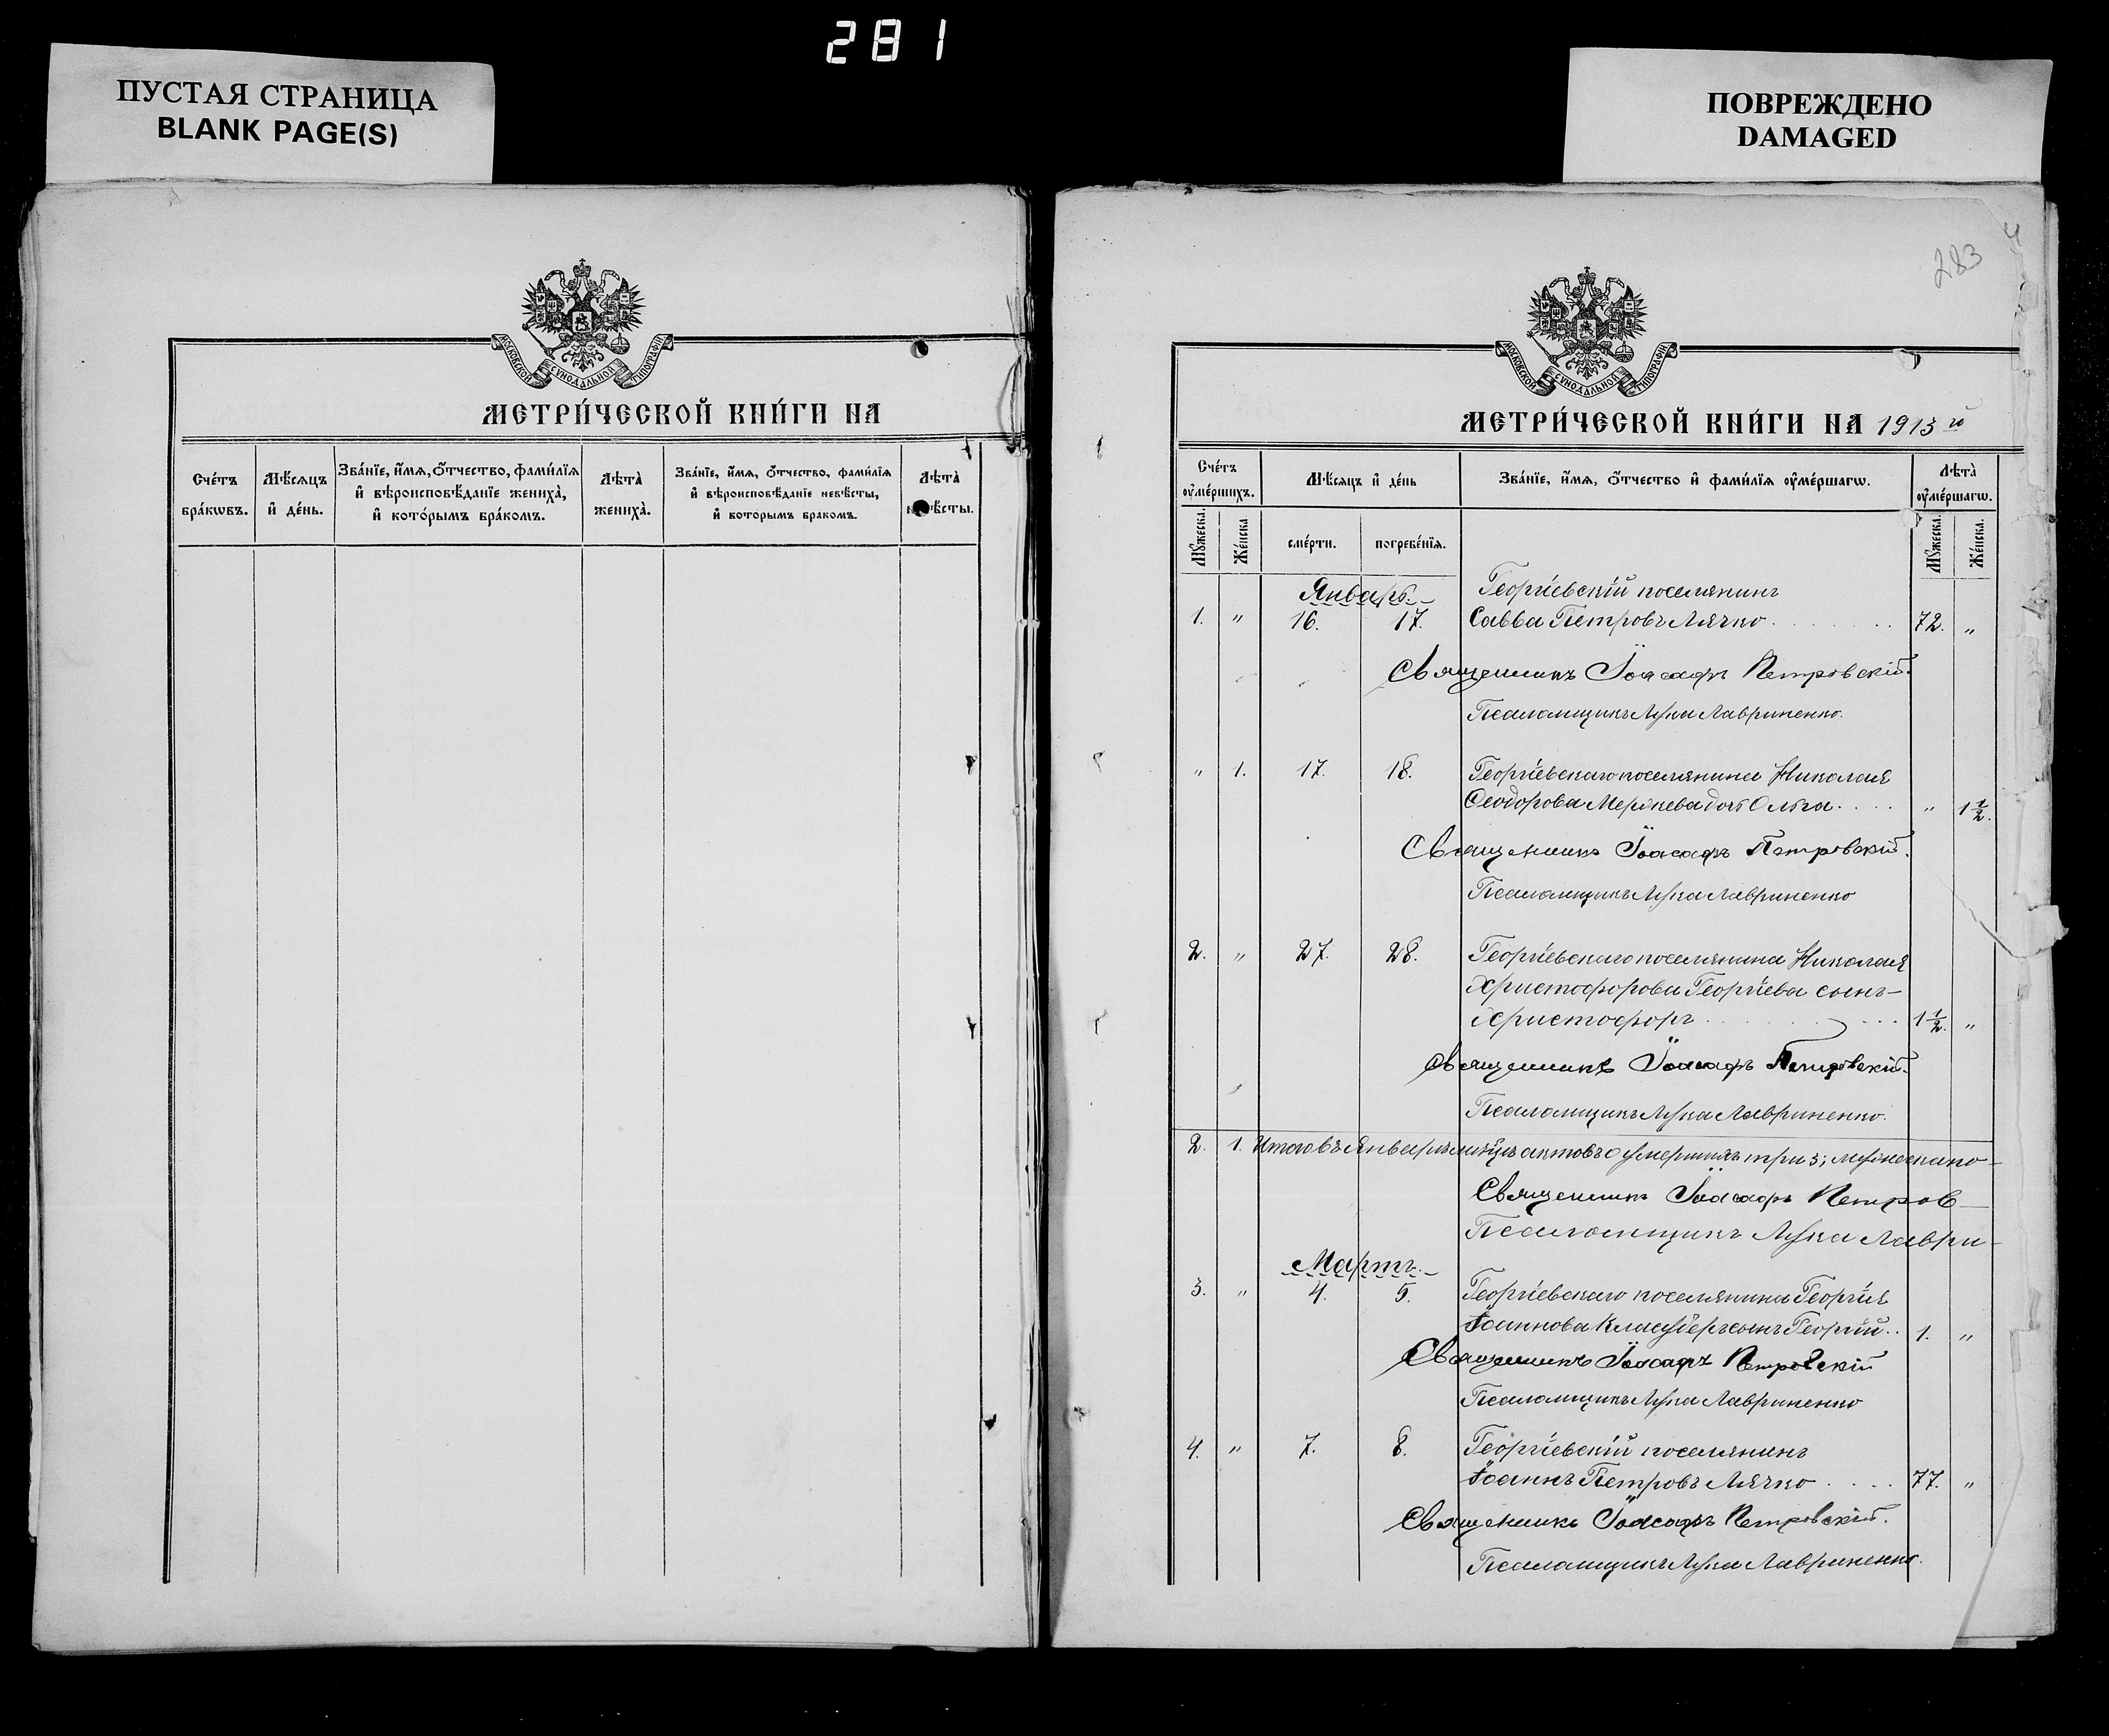 281
ПУСТАЯ СТРАНИЦА
BLANK PAGE(S)
ПОВРЕЖДЕНО
DAMAGED
МОСКОВСКОЙ СѴНОДАЛЬНОЙ ТИПОГРАФІИ
МЕТРИ́ЧЕСКОЙ КНИ́ГИ НА
Сче́тъ бра́кѡвъ.
Мѣ́сѧцъ и҆ де́нь.
Зва́нїе, и҆́мѧ, ѻ҆́тчество, фами́лїѧ и҆ вѣроисповѣ́данїе женихà, и҆ кото́рымъ бра́комъ.
Лѣтà женихà.
Зва́нїе, и҆́мѧ, ѻ҆́тчество, фами́лїѧ и҆ вѣроисповѣ́данїе невѣ́сты, и҆ которымъ бракомъ.
Лѣтà невѣ́сты.
283
МОСКОВСКОЙ СѴНОДАЛЬНОЙ ТИПОГРАФІИ
МЕТРИ́ЧЕСКОЙ КНИ́ГИ НА 1913 й
Сче́тъ ᲂу҆ме́ршихъ.
Мѣ́сѧцъ и҆ де́нь
Зва́нїе, и҆́мѧ, ѻ҆́тчество и҆ фами́лїѧ ᲂу҆ме́ршагѡ.
Лѣтà ᲂу҆ме́ршагѡ.
Мꙋ́жеска. Же́нска сме́рти. погребе́нїѧ. Мꙋ́жеска. Же́нска.
Январь. Георгіевскій поселянинъ
1. " 16. 17. Савва Петровъ Лячко 72. "
Священникъ Іоасафъ Петровскій.
Псаломщикъ Лука Лавриненко.
" 1. 17. 18. Георгіевскаго поселянина Николая
Ѳеодорова дочь Ольга " 1½.
Священникъ Іоасафъ Петровскій.
Псаломщикъ Лука Лавриненко
2. " 27. 28. Георгіевскаго поселянина Николая
Христофорова Георгіева сынъ
Христофоръ 1½. "
Священникъ Іоасафъ Петровскій.
Псаломщикъ Лука Лавриненко.
2. 1. Итого въ Январѣ мѣсяцѣ актовъ о умершихъ три 3; мужеска по-
Священникъ Іоасафъ Петров-
Псаломщикъ Лука Лаври-
Мартъ.
3. " 4. 5. Георгіевскаго поселянина Георгія
Іоаннова сынъ Георгій 1. "
Священникъ Іоасафъ Петровскій
Псаломщикъ Лука Лавриненко
4. " 7. 8. Георгіевскій поселянинъ
Іоаннъ Петровъ Лячко 77. "
Священникъ Іоасафъ Петровскій.
Псаломщикъ Лука Лавриненко.